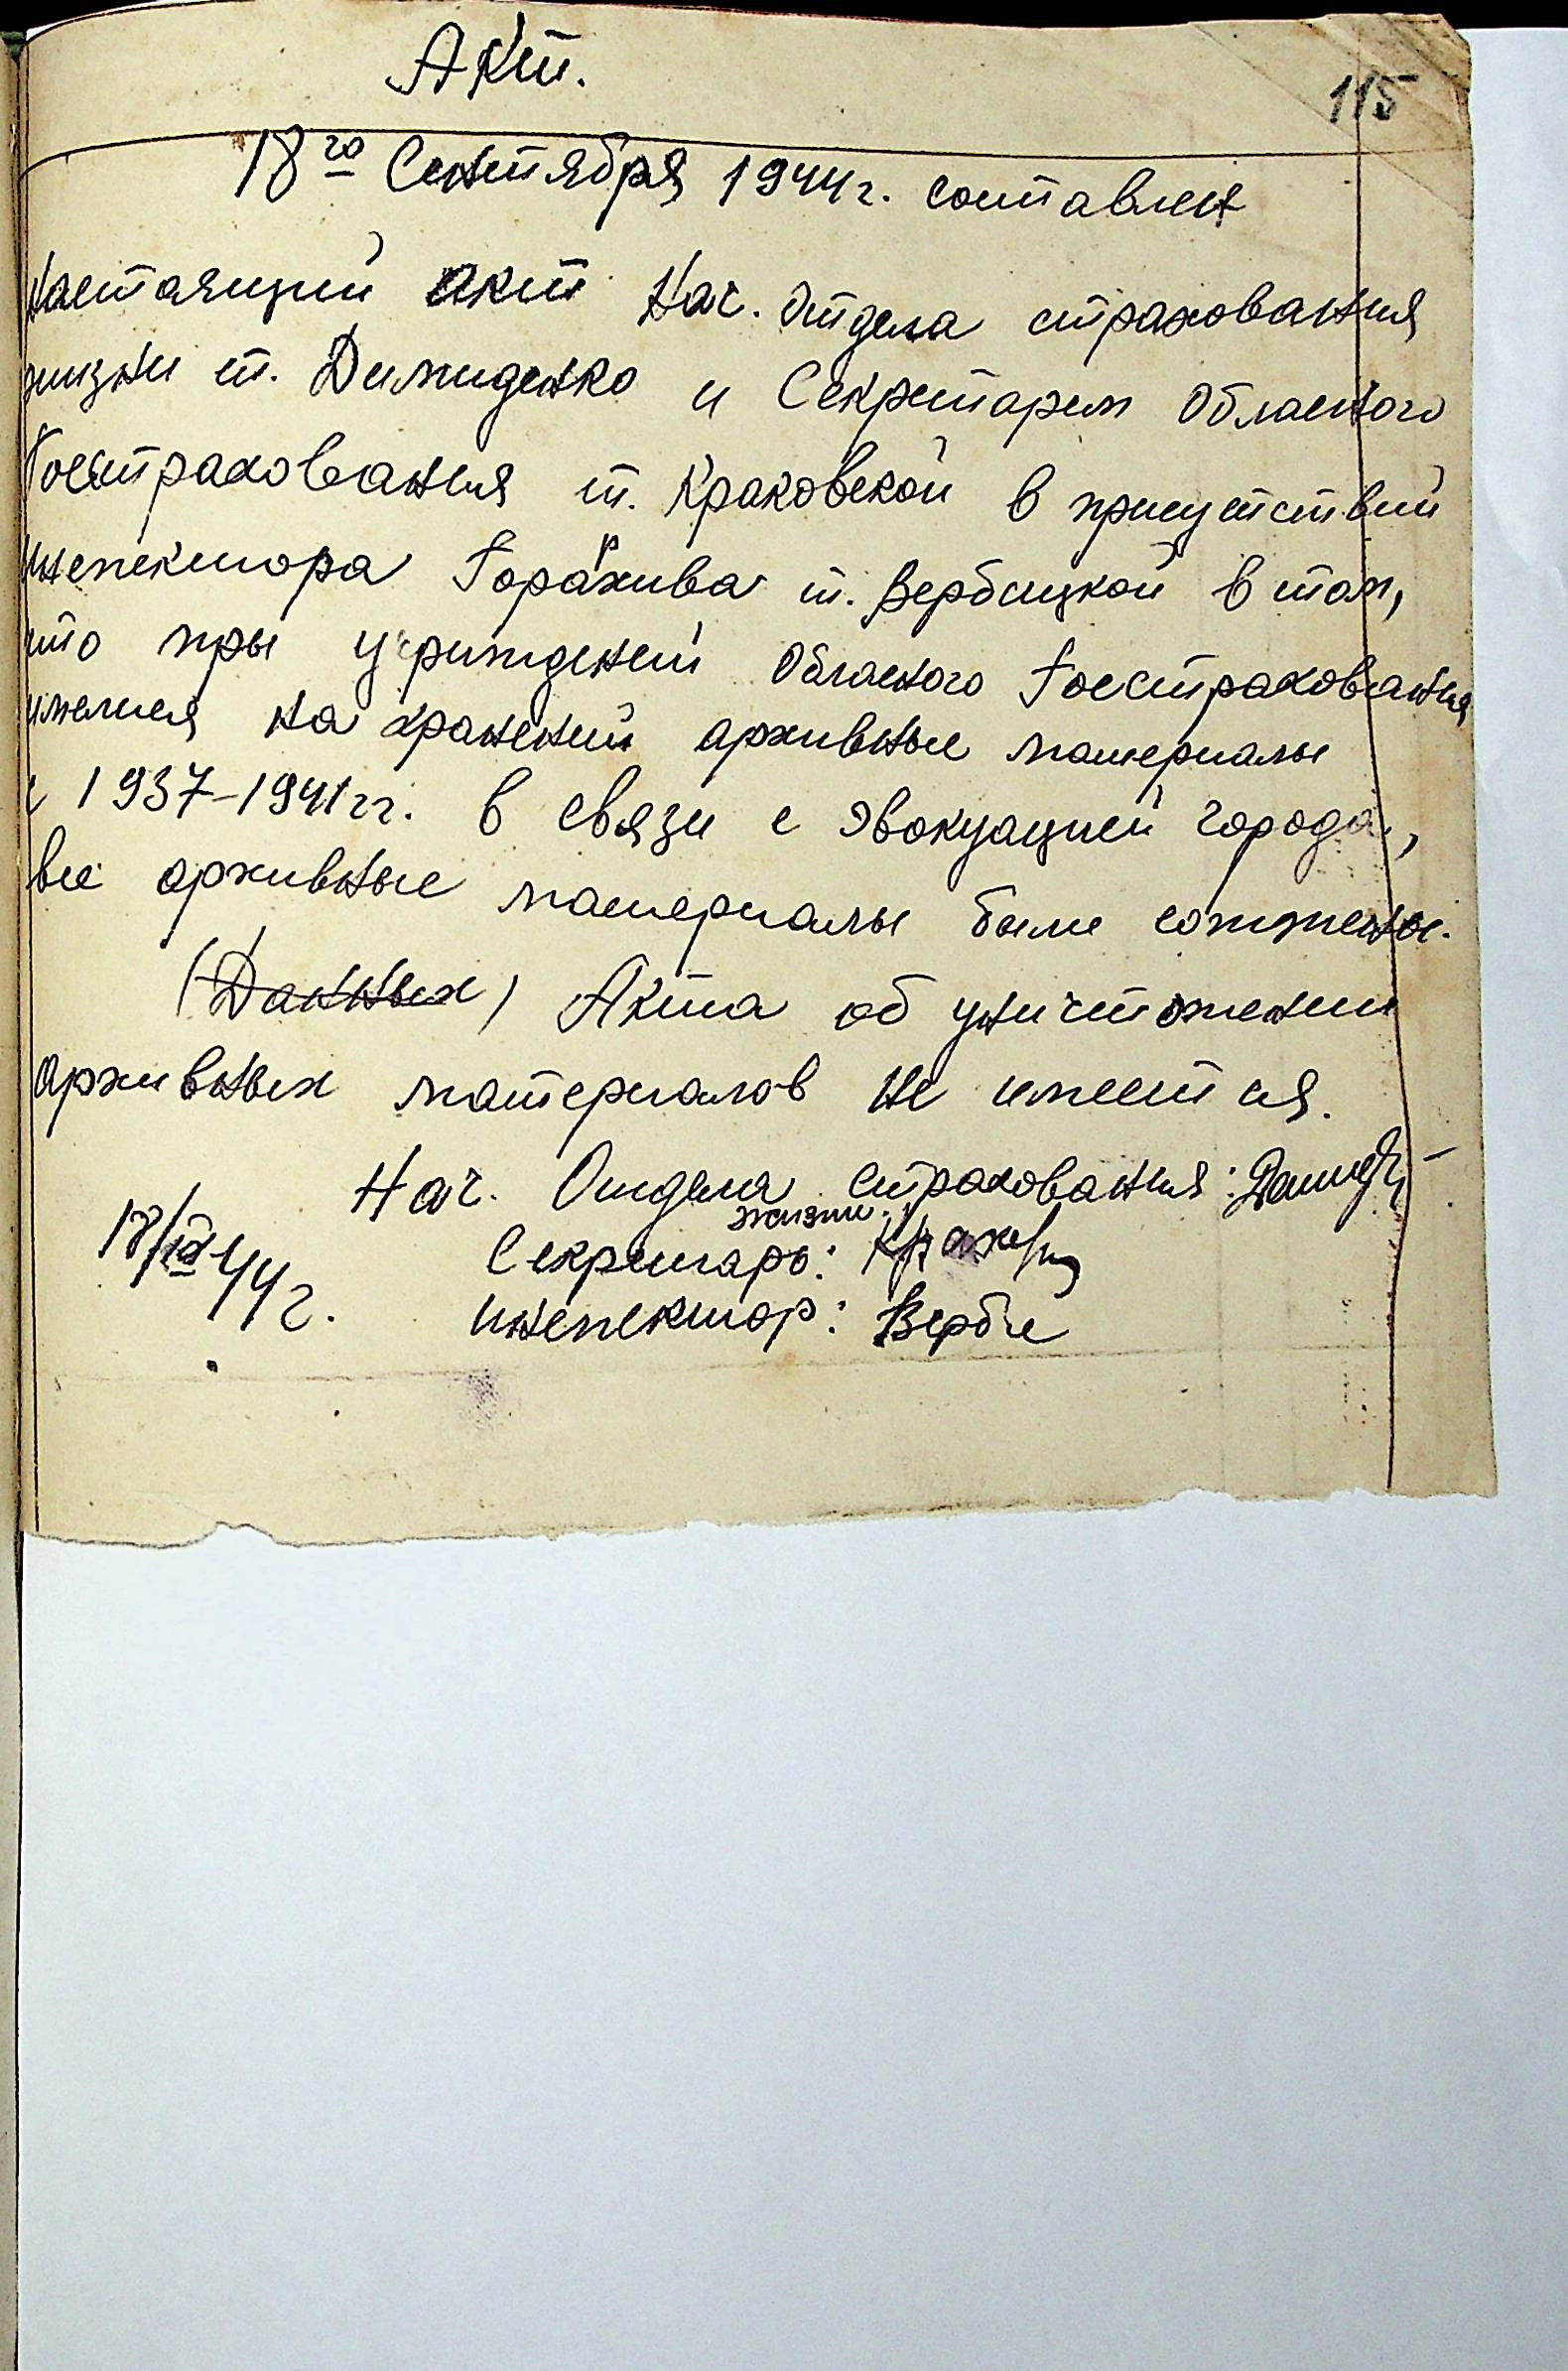 Акт.
115
18го Сентября 1944г. составлен
настоящий акт Нач. Отдела страхования
жизни т. Димиденко и Секретарем Обласного
Госстрахования т. Краковской в присуттствий
инспектора Горархива т. Вербицкой в том,
что пры учриждений Обласного Госстрахования
имелися на хранений архивные материалы
с 1937-1941гг. в связи с эвокуацией города,
все архивные материалы были сожжены.
(Данных) Акта об уничтожении
архивных материалов не имеется.
Нач. Отдела страхования:
жизни.
18/IX 44г.
Секретарь:
инспектор: Вербе